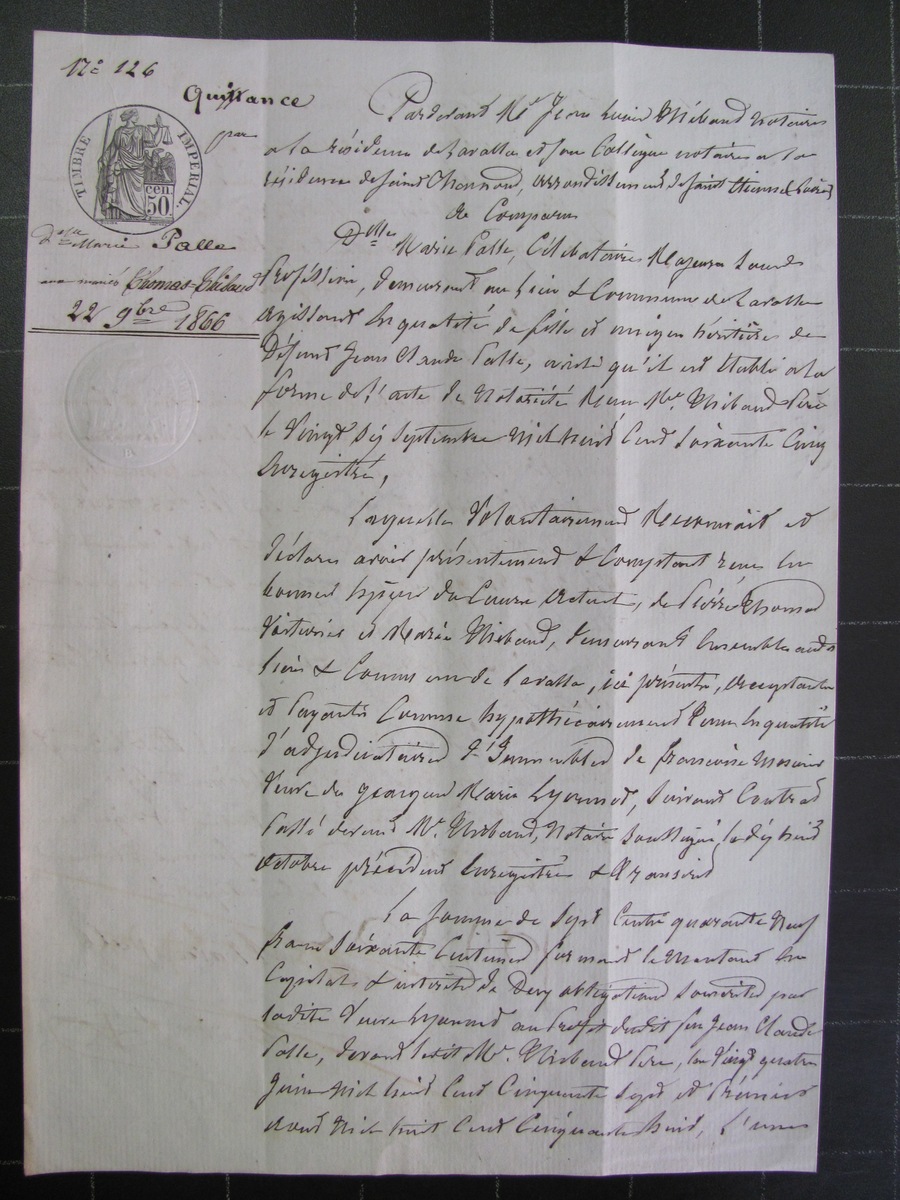 N° 126
Quittance
par
TIMBRE IMPERIAL
cen. 50
Dlle Marie Palle
aux mariés Thomas-Thibaud
22 9bre 1866
Pardevant Me Jean Thibaud notaire
à la résidence de Lavalla et son Collègue notaire à la
résidence de Saint Chamond, arrondissement de Saint Etienne (Loire)
a Comparu
Dlle Marie Palle, Célibataire Majeure sans
Profession, demeurant au lieu & Commune de Lavalla
agissant en qualité de fille et unique héritière de
Défunt Jean Claude Palle, ainsi qu'il est établi à la
forme de l'acte de Notoriété Reçu Me Thibaud père
le Vingt Six Septembre Mil huit Cent Soixante Cinq
Enregistré,
Laquelle Volontairement Reconnait et
Déclare avoir présentement & Comptant reçu en
bonnes espèces du Cours Actuel, de Pierre Thomas
Voiturier et Marie Thibaud, demeurant Ensemble audit
lieu & Commune de Lavalla, ici présents, acceptants
et Payants Comme hypothécairement tenus En qualité
d'adjudicataires d'Immeubles de françoise
Veuve de Marie Lyonnet, Suivant Contrat
Passé devant Me Thibaud, Notaire Soussigné, le dix huit
octobre précédent Enregistré & Transcrit
La Somme de Sept Cents quarante Neuf
francs Soixante Centimes formant le Montant En
Capitals & intérêts de Deux obligations Souscrites par
ladite Veuve Lyonnet au Profit dudit feu Jean Claude
Palle, devant ledit Me Thibaud Père, les Vingt quatre
Juin Mil huit Cent Cinquante Sept et Premier
aout Mil huit Cent Cinquante huit, l'une